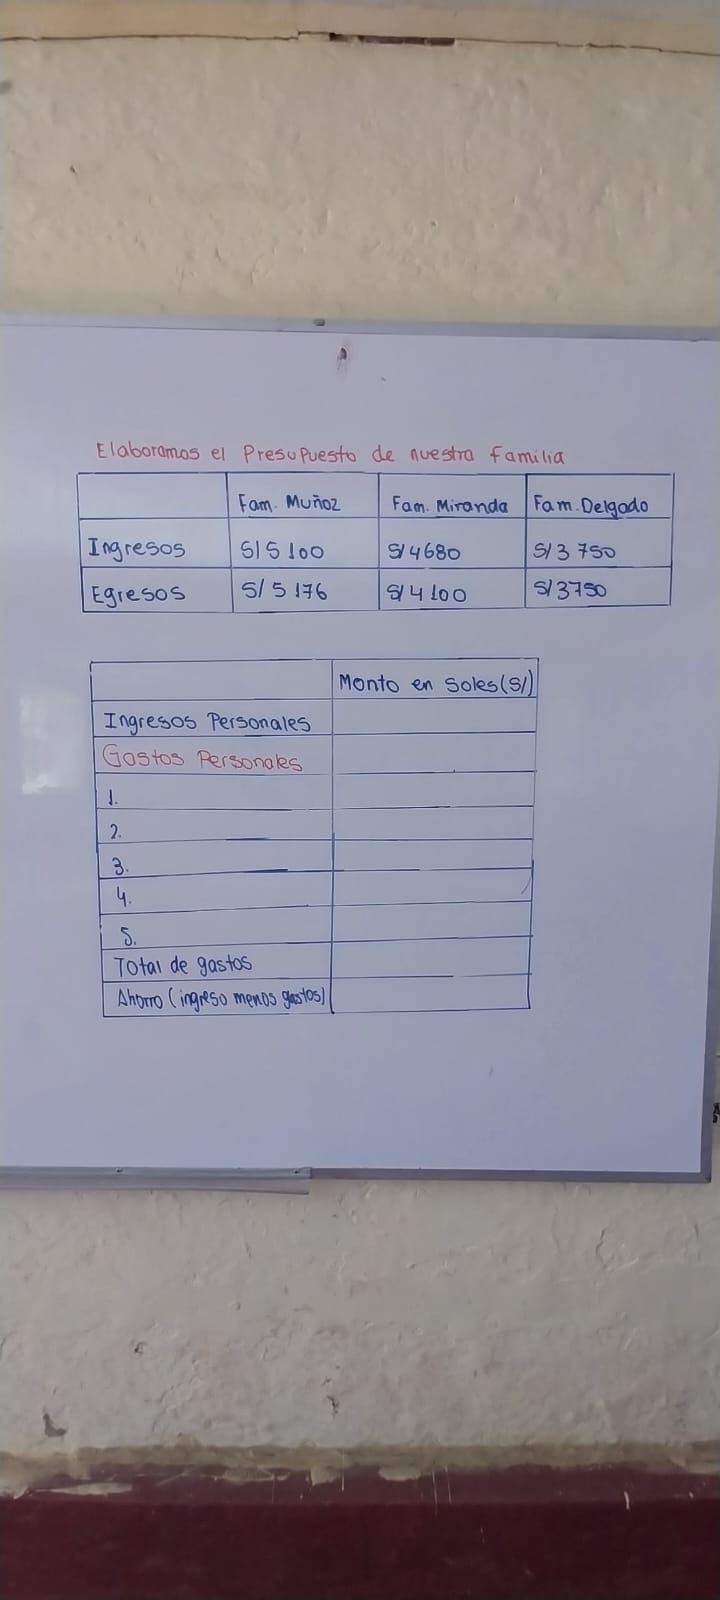 Elaboramos el Presupuesto de nuestra familia
Fam. Muñoz Fam. Miranda Fam. Delgado
Ingresos S/5 100 S/4680 S/3 750
Egresos S/5 176 S/4 100 S/3750
Monto en Soles (S/)
Ingresos Personales
Gastos Personales
1.
2.
3.
4.
5.
Total de gastos
Ahorro (ingreso menos gastos)